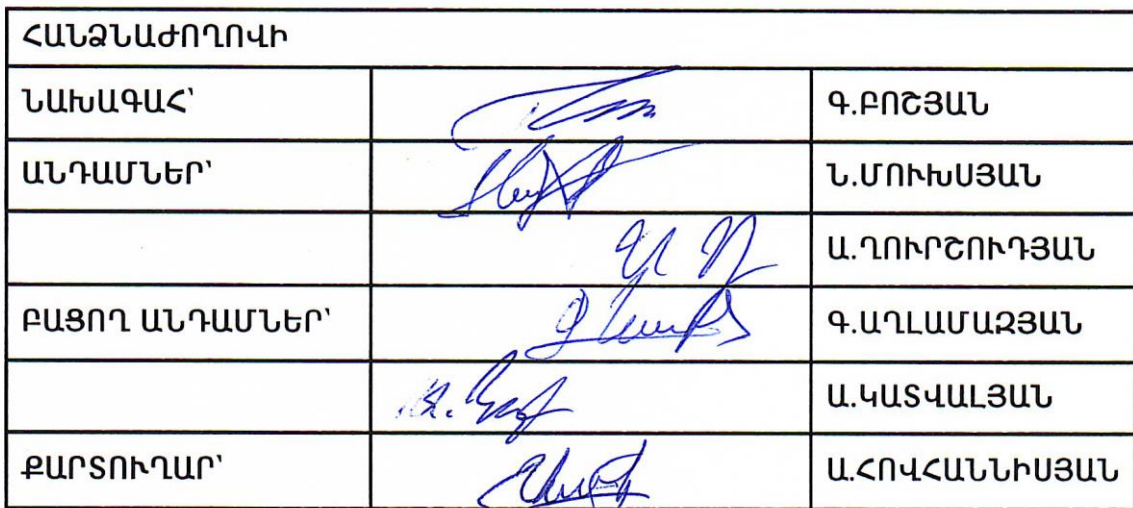 ՀԱՆՁՆԱԺՈՂՈՎԻ
ՆԱԽԱԳԱՀ՝ Գ.ԲՈՇՅԱՆ
ԱՆԴԱՄՆԵՐ՝ Ն.ՄՈՒԽՍՅԱՆ
Ա.ՂՈՒՐՇՈՒԴՅԱՆ
ԲԱՑՈՂ ԱՆԴԱՄՆԵՐ՝ Գ.ԱՂԼԱՄԱԶՅԱՆ
Ա.ԿԱՏՎԱԼՅԱՆ
ՔԱՐՏՈՒՂԱՐ՝ Ա.ՀՈՎՀԱՆՆԻՍՅԱՆ